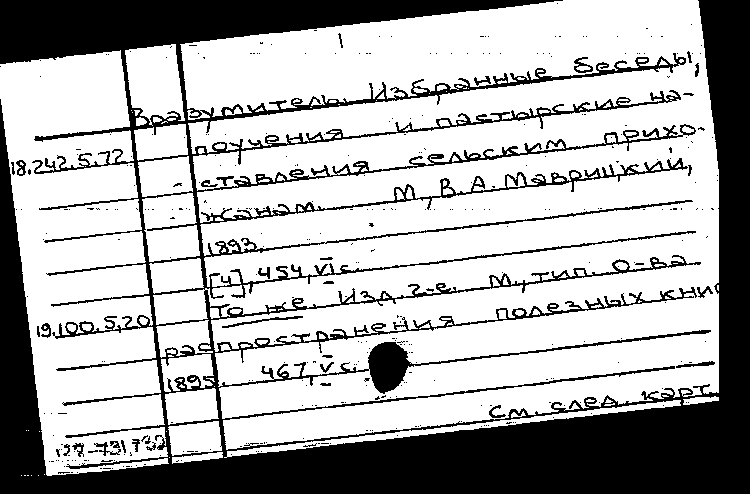 1
Вразумитель. Избранные беседы,
18.242.5.72 поучения и пастырские на-
ставления сельским прихо-
жанам. М., В.А. Маврицкий,
1893.
[4], 454, VI с.
То же. Изд. 2-е. М., тип. О-ва
19.100.5.20 распространения полезных книг
1895. 467, V с.
См. след. карт.